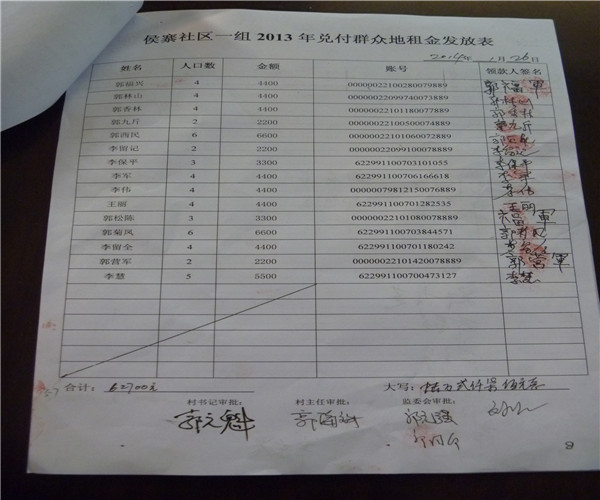 侯寨社区一组 2013 年兑付群众地租金发放表
2014年 1月26日
姓名 人口数 金额 账号 领款人签名
郭福兴 4 4400 00000022100280079889
郭林山 4 4400 00000022099740073889
郭香林 4 4400 00000022101180077889
郭九斤 2 2200 00000022100500074889 郭九斤
郭西民 6 6600 00000022101060072889
李留记 2 2200 00000022099100078889
李保平 3 3300 622991100703101055 李保平
李军 4 4400 622991100706166618 李军
李伟 4 4400 00000079812150076889 李伟
王丽 4 4400 622991100701282535 王丽
郭松陈 3 3300 00000022101080078889
郭菊凤 6 6600 622991100703844571
李留全 4 4400 622991100701180242
郭营军 2 2200 00000022101420078889 郭营军
李慧 5 5500 622991100700473127 李慧
合计: 62700元 大写:
村书记审批: 村主任审批: 监委会审批:
郭之魁
8